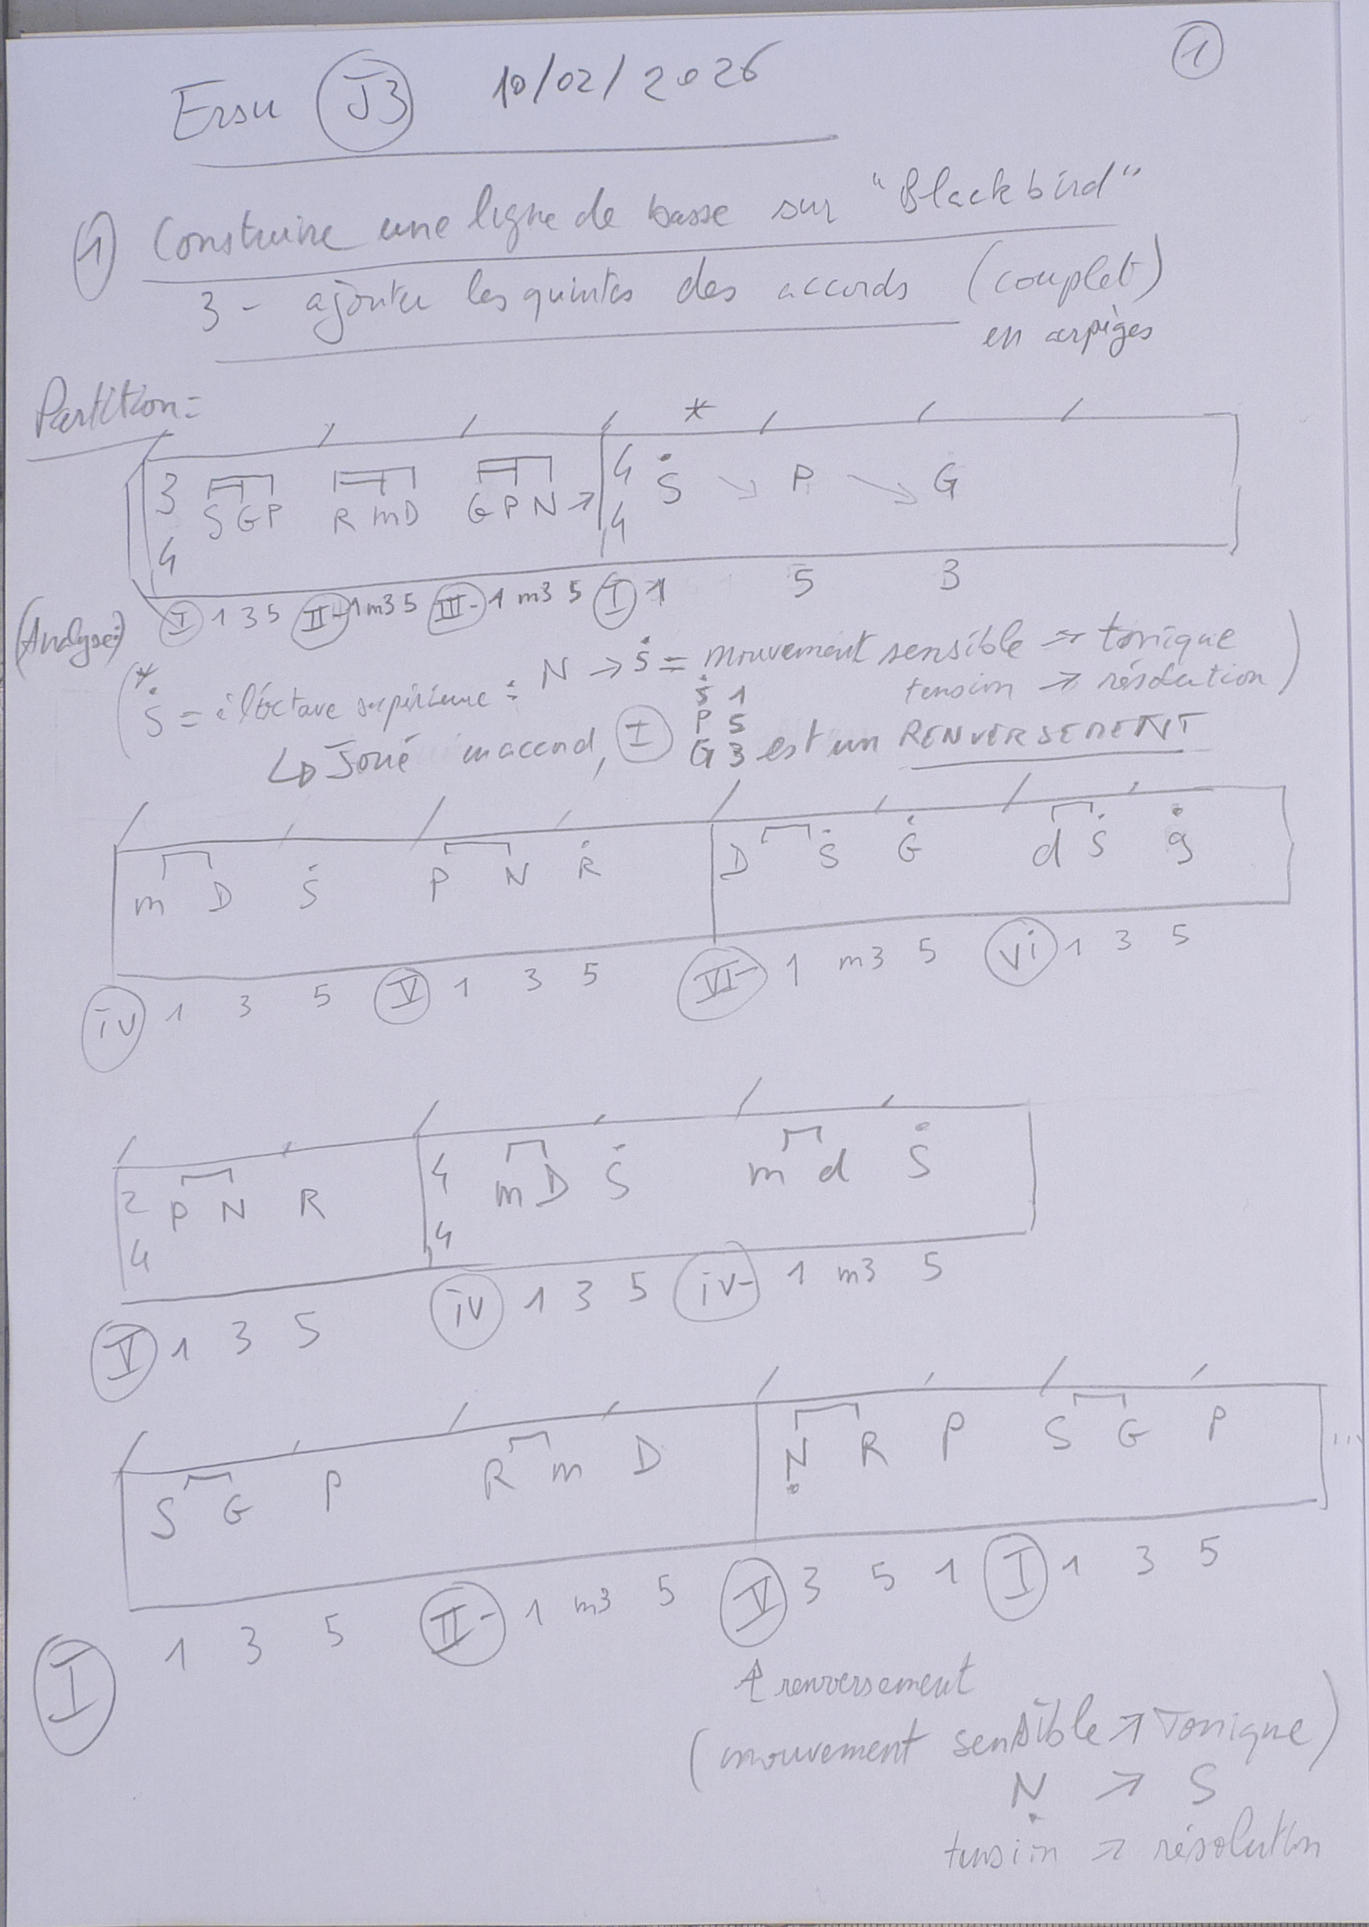 1
Ersu J3 10/02/2026
1) Construire une ligne de basse sur "Blackbird"
3 - ajouter les quintes des accords (couplet)
en arpèges
Partition =
*
3/4 S G P R m D G P N → 4/4 Ṡ ↘ P ↘ G
(Analyse:) I 1 3 5 II- 1 m3 5 III- 1 m3 5 I 1 5 3
(* Ṡ = à l'octave supérieure : N → Ṡ = mouvement sensible → tonique
tension → résolution)
↳ Joué en accord, I Ṡ 1 P 5 G 3 est un RENVERSEMENT
m D Ṡ P N Ṙ D Ṡ Ġ d Ṡ ġ
iv 1 3 5 V 1 3 5 VI- 1 m3 5 vi 1 3 5
2/4 P N R 4/4 m D Ṡ m d Ṡ
V 1 3 5 iv 1 3 5 iv- 1 m3 5
S G P R m D Ṇ R P S G P ...
I 1 3 5 II- 1 m3 5 V 3 5 1 I 1 3 5
↑ renversement
(mouvement sensible → Tonique)
Ṇ → S
tension → résolution